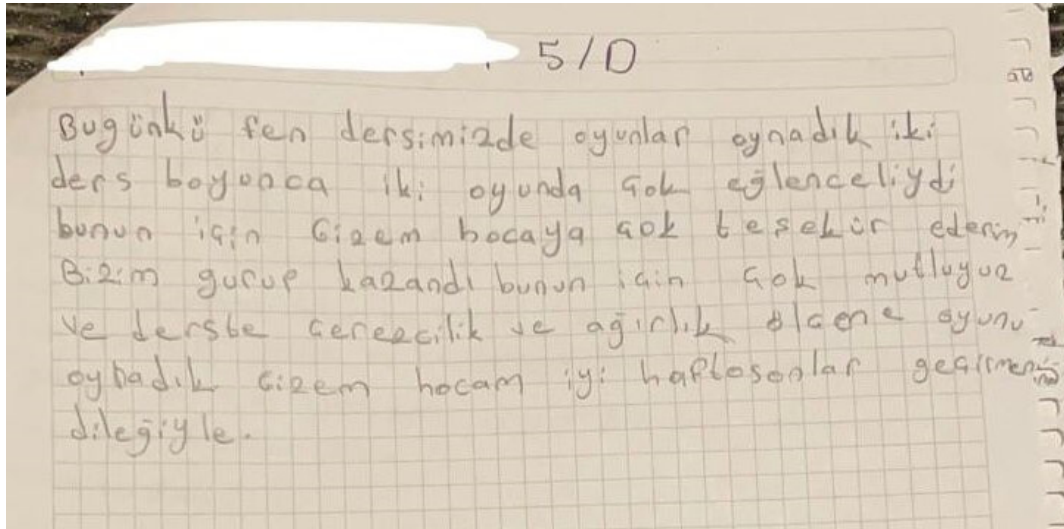 5/D
Bugünkü fen dersimizde oyunlar oynadık iki
ders boyunca iki oyunda çok eğlenceliydi
bunun için Gizem hocaya çok teşekür ederim
Bizim gurup kazandı bunun için çok mutluyuz
ve derste çerezcilik ve ağırlık ölçene oyunu
oynadık Gizem hocam iyi haftosonlar geçirmeniz
dileğiyle.